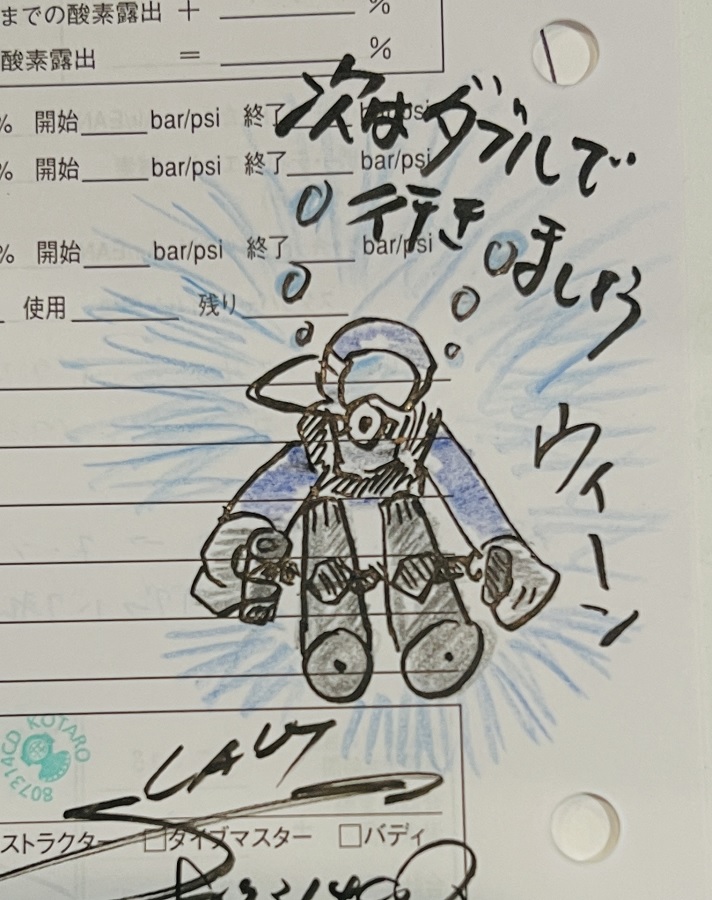 までの酸素露出 + ______ %
酸素露出 = ______ %
% 開始______bar/psi 終了______bar/psi
% 開始______bar/psi 終了______bar/psi
% 開始______bar/psi 終了______bar/psi
使用______ 残り______
次はダブルで
行き
ましょう
ウィーン
KOTARO
807314CD
ストラクター □ダイブマスター □バディ